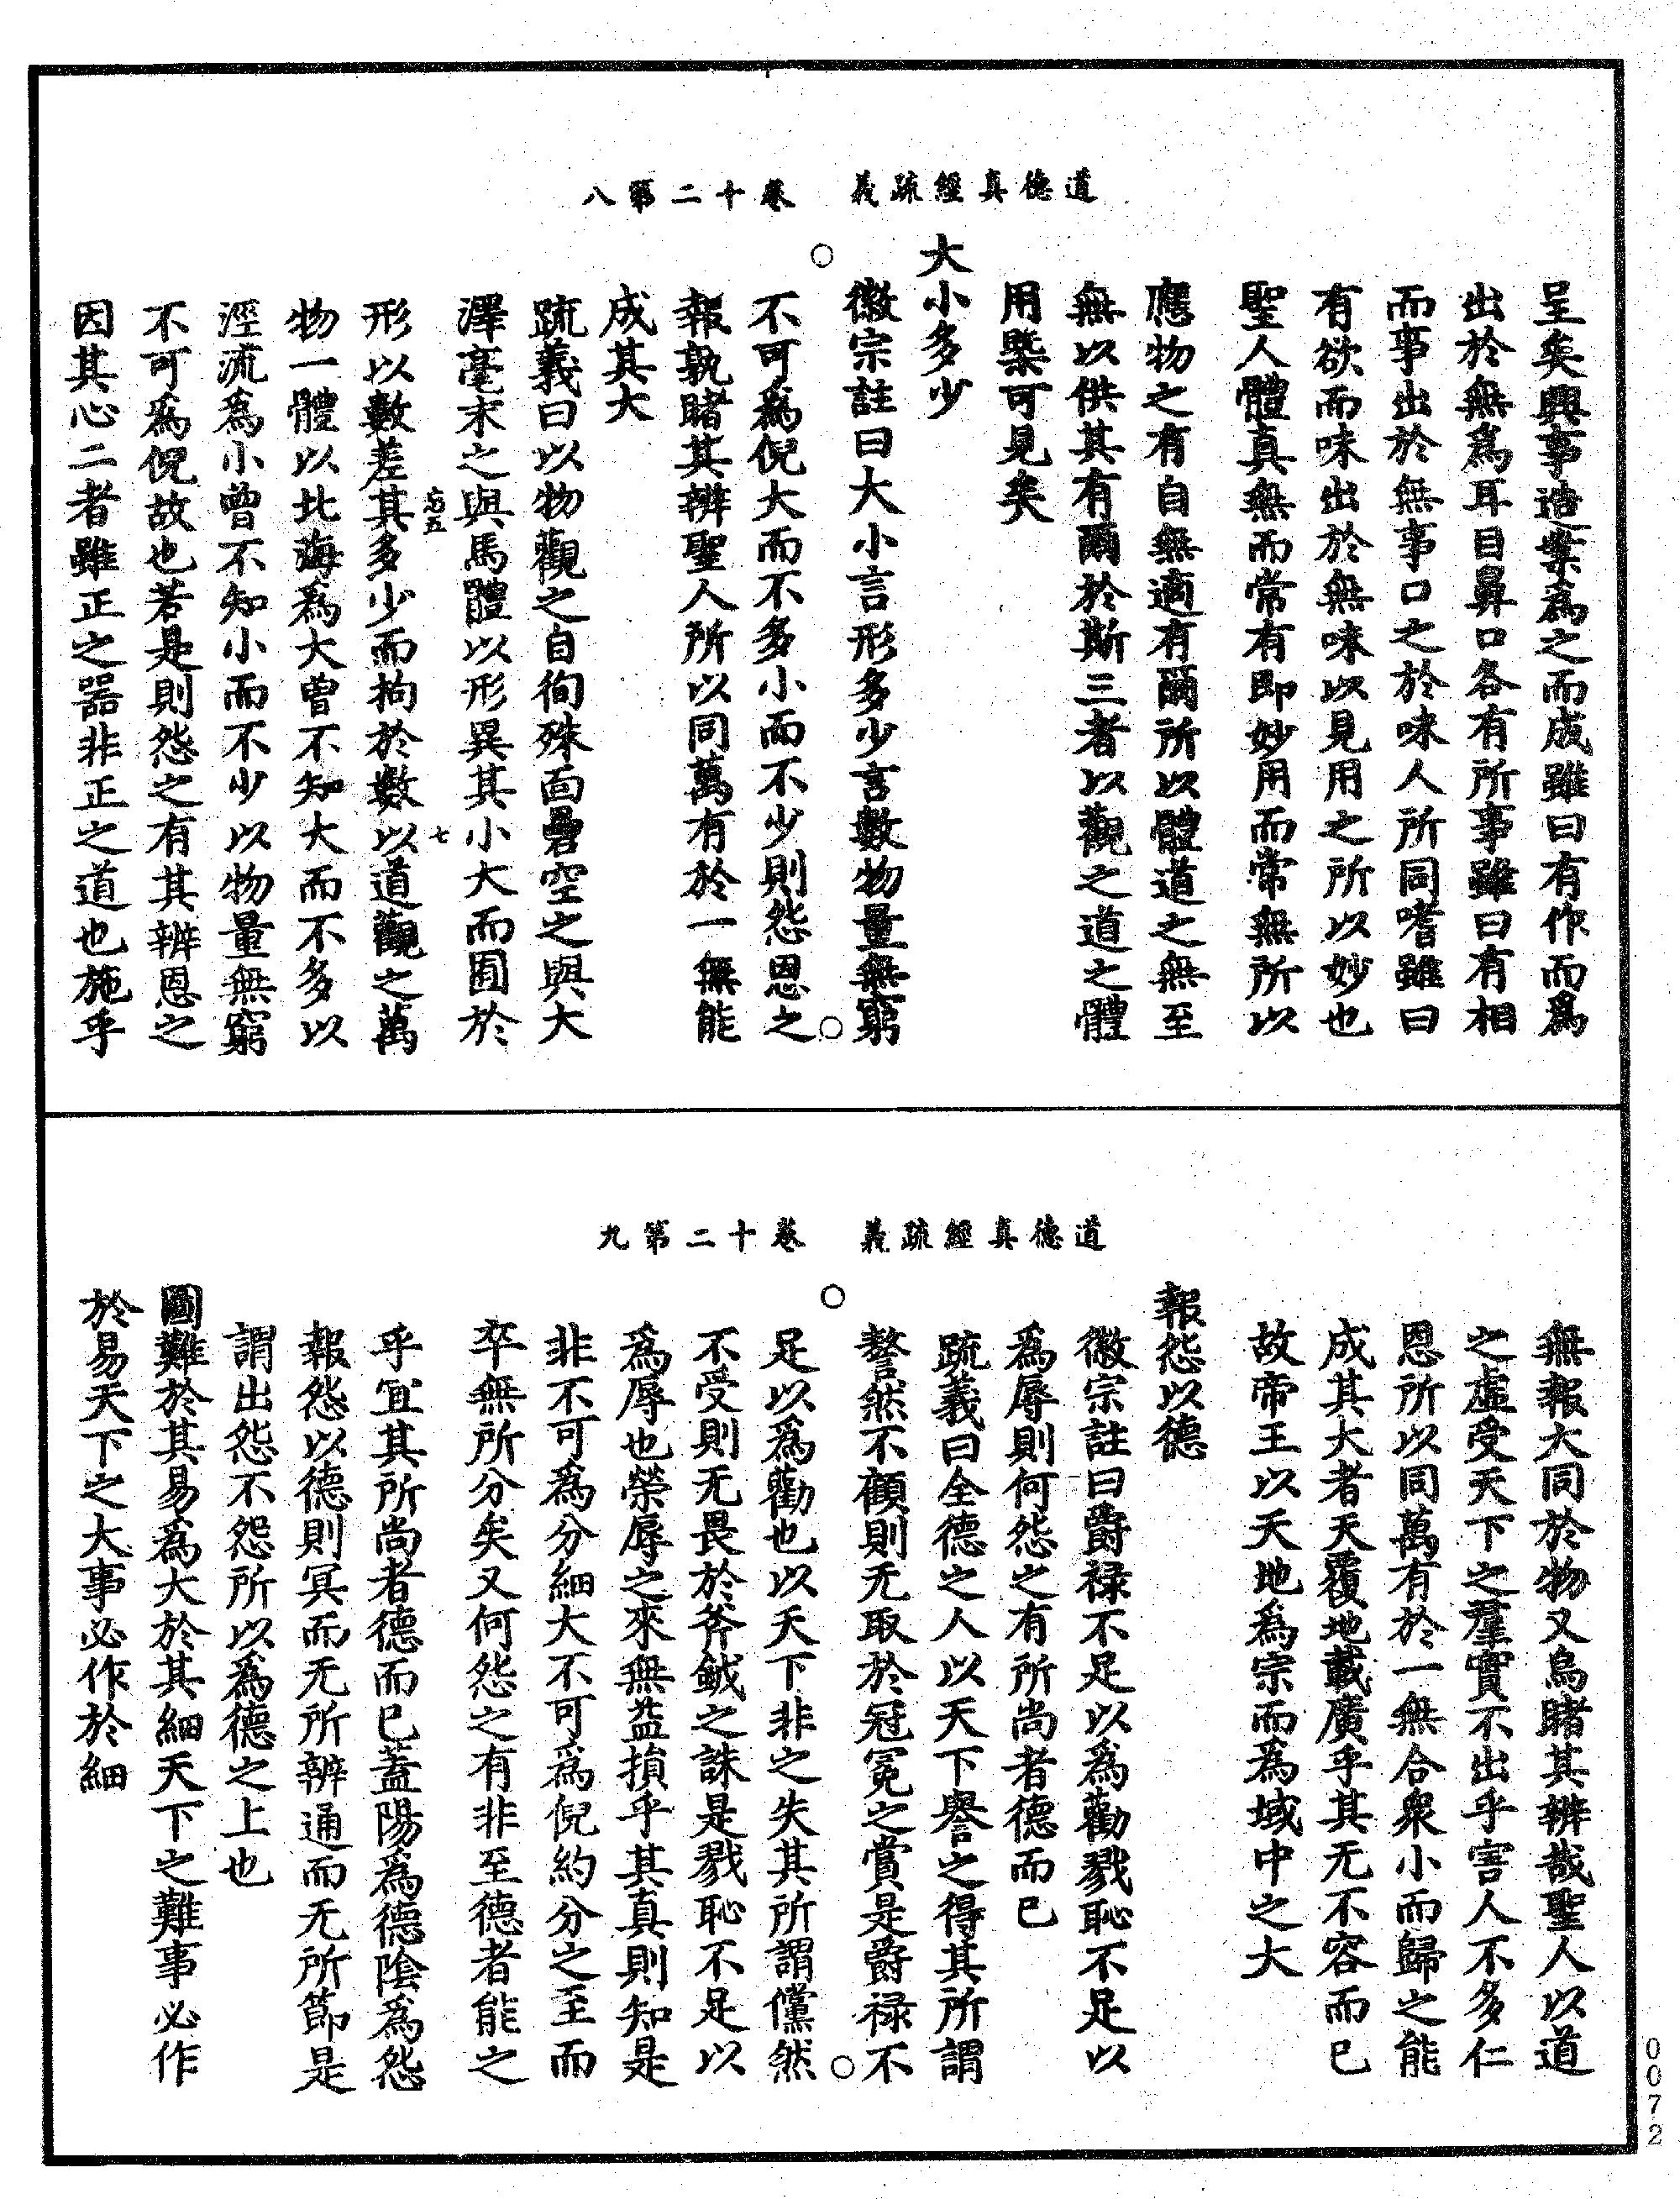 道德真經疏義　卷十二第八
呈矣興事造業為之而成雖曰有作而爲
出於無爲耳目鼻口各有所事雖曰有相
而事出於無事口之於味人所同嗜雖曰
有欲而味出於無味以見用之所以妙也
聖人體真無而常有即妙用而常無所以
應物之有自無適有爾所以體道之無至
無以供其有爾於斯三者以觀之道之體
用槩可見矣
大小多少
徽宗註曰大小言形多少言數物量無窮
不可爲倪大而不多小而不少則怨恩之
報孰睹其辨聖人所以同萬有於一無能
成其大
疏義曰以物觀之自徇殊面礨空之與大
澤毫末之與馬體以形異其小大而囿於
形以數差其多少而拘於數以道觀之萬
物一體以北海爲大曾不知大而不多以
涇流爲小曾不知小而不少以物量無窮
不可爲倪故也若是則怨之有其辨恩之
因其心二者雖正之噐非正之道也施乎
忘五
七
道德真經疏義　卷十二第九
無報大同於物又烏睹其辨哉聖人以道
之虛受天下之羣實不出乎害人不多仁
恩所以同萬有於一無合衆小而歸之能
成其大者天覆地載廣乎其无不容而已
故帝王以天地爲宗而爲域中之大
報怨以德
徽宗註曰爵禄不足以爲勸戮恥不足以
爲辱則何怨之有所尚者德而已
疏義曰全德之人以天下譽之得其所謂
謷然不顧則无取於冠冕之賞是爵禄不
足以爲勸也以天下非之失其所謂儻然
不受則无畏於斧鉞之誅是戮恥不足以
爲辱也榮辱之來無益損乎其真則知是
非不可爲分細大不可爲倪約分之至而
卒無所分矣又何怨之有非至德者能之
乎宜其所尚者德而已蓋陽爲德陰爲怨
報怨以德則冥而无所辨通而无所節是
謂出怨不怨所以爲德之上也
圖難於其易爲大於其細天下之難事必作
於易天下之大事必作於細
0072